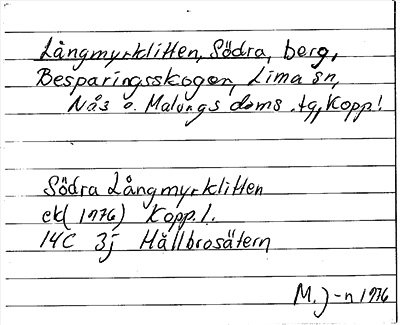 Långmyrklitten, Södra, berg,
Besparingsskogen, Lima sn,
Nås o. Malungs doms.tg, Kopp.l
Södra Långmyrklitten
ek (1976) Kopp.l.
14C 3j Hållbrosätern
M.J-n 1976